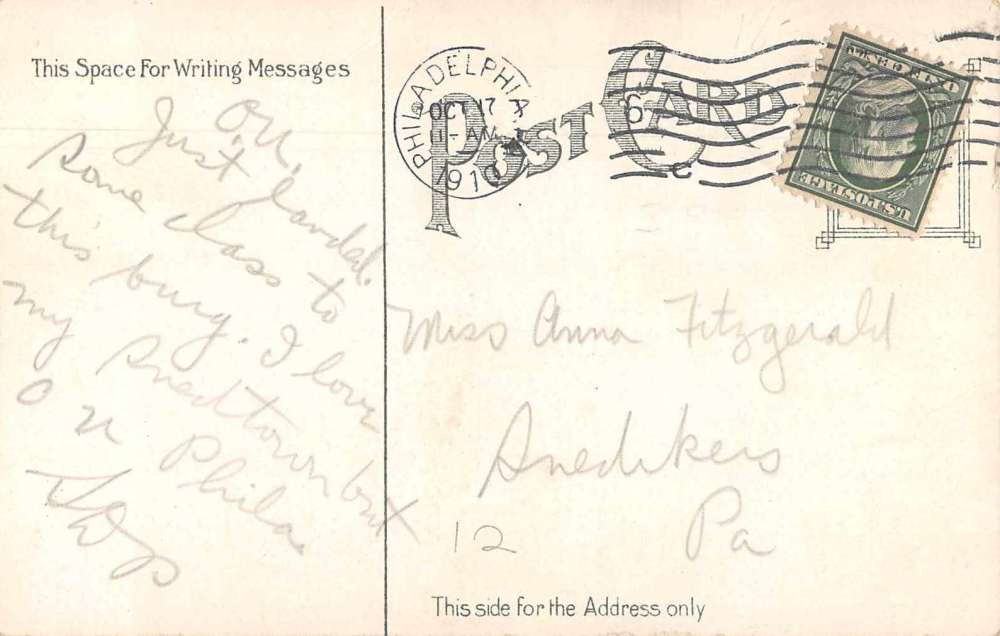 This Space For Writing Messages
O.U.
Just landed.
Some class to
this burg. I love
my Snedtown but
O U Phila.
PHILADELPHIA
OCT 17
11-AM
1910
POST CARD
6
C
U.S. POSTAGE
ONE CENT
Miss Anna Fitzgerald
Snedikers
Pa
12
This side for the Address only